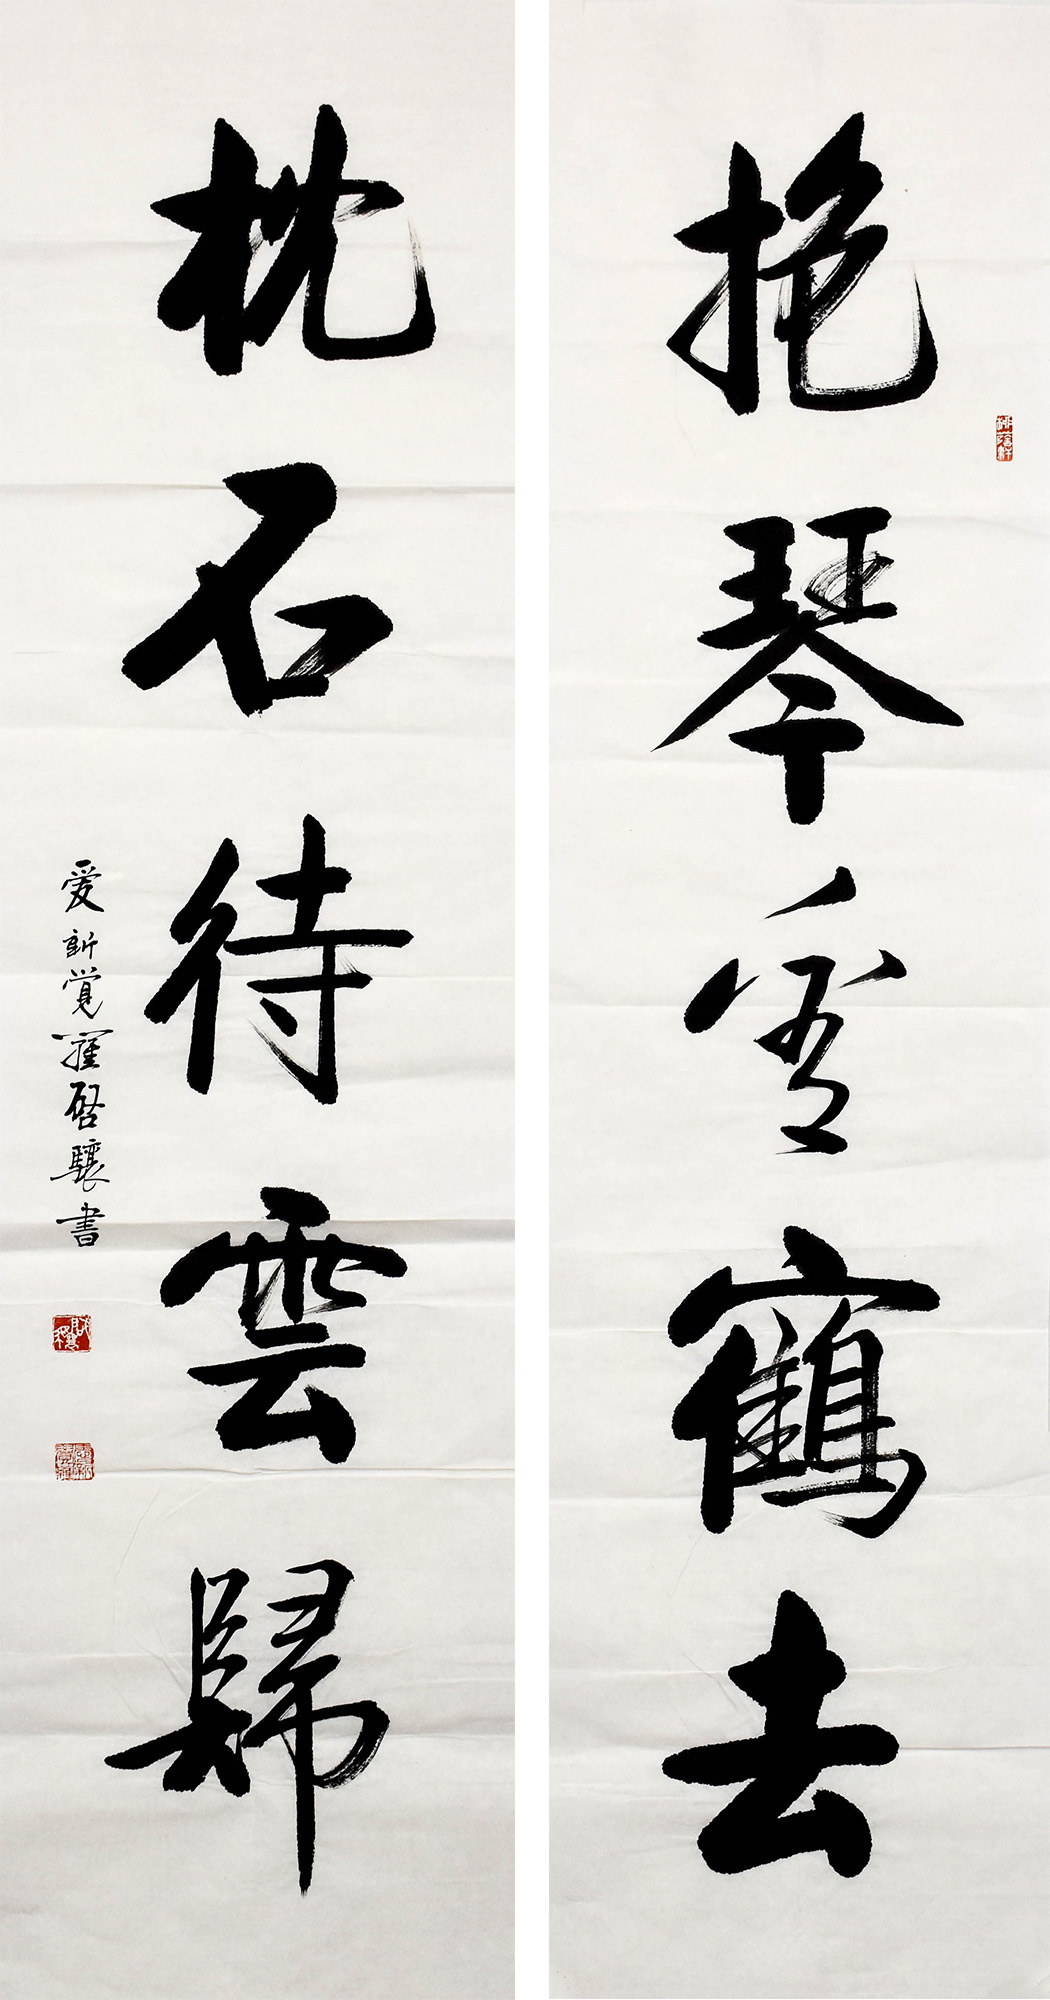 抱琴看鶴去
枕石待雲歸
爱新覚羅启驤書